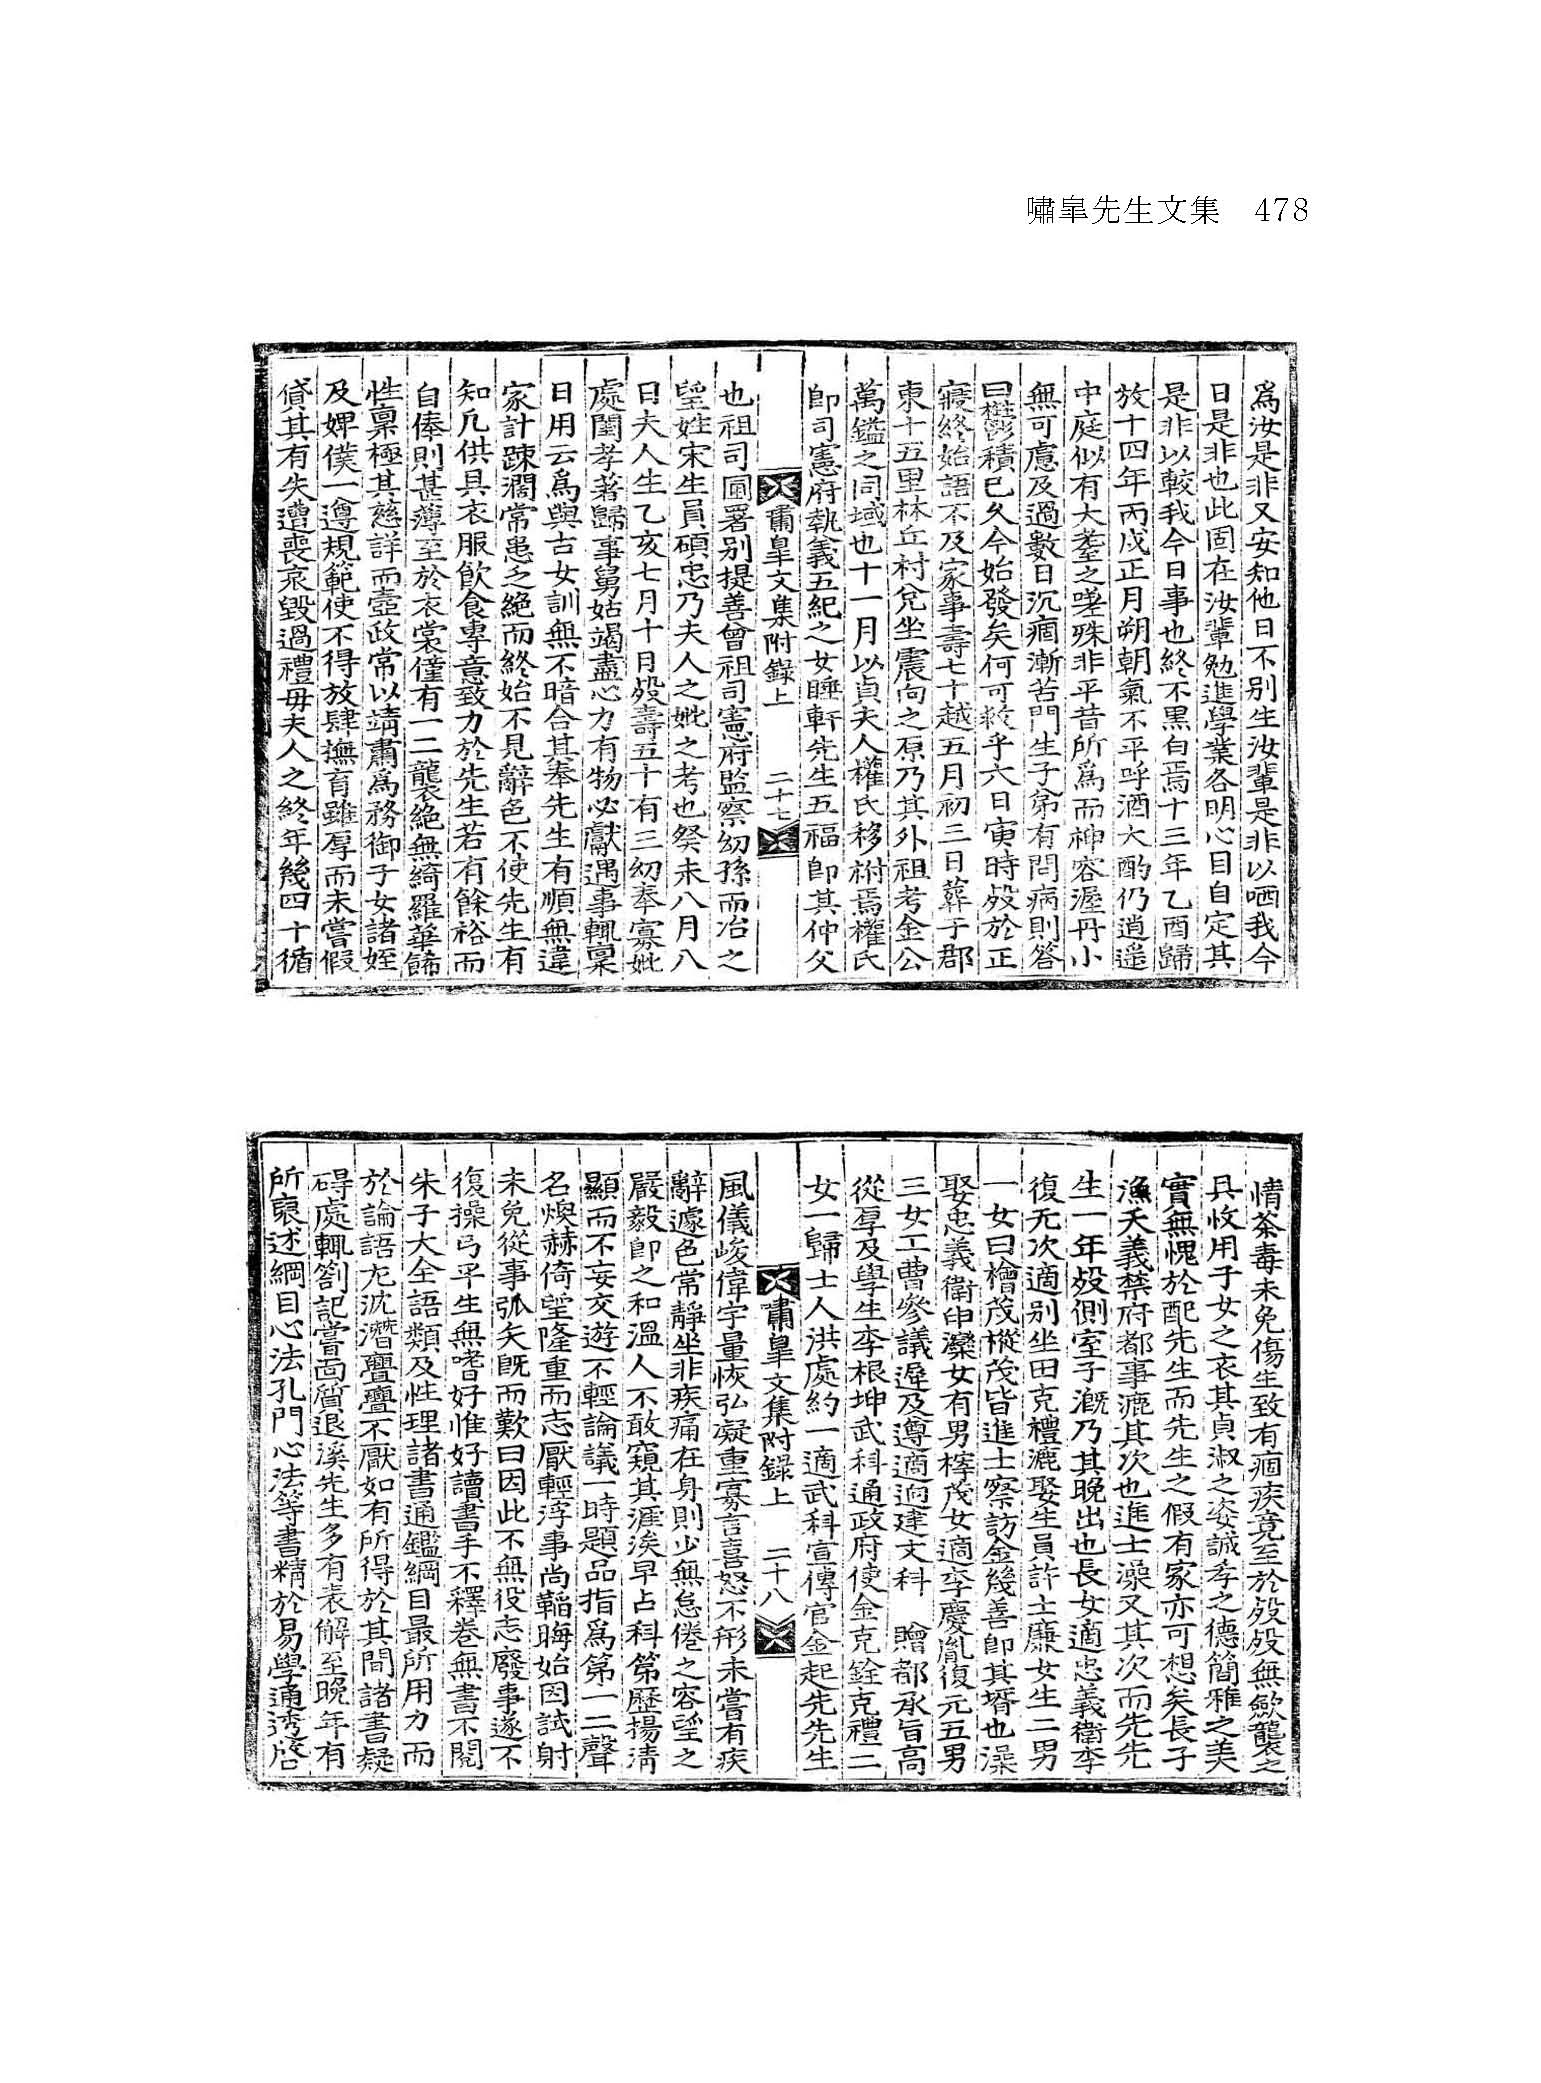 嘯皐先生文集 478
爲汝是非又安知他日不別生汝輩是非以哂我今
日是非也此固在汝輩勉進學業各明心目自定其
是非以較我今日事也終不黑白焉十三年乙酉歸
放十四年丙戌正月朔朝氣不平呼酒大酌仍逍遥
中庭似有大耋之嗟殊非平昔所爲而神容渥丹小
無可慮及過數日沉痼漸苦門生子弟有問病則答
曰欝積已久今始發矣何可救乎六日寅時歿於正
寢終始語不及家事壽七十越五月初三日葬于郡
東十五里林丘村兌坐震向之原乃其外祖考金公
萬鎰之同域也十一月以貞夫人權氏移祔焉權氏
卽司憲府執義五紀之女睡軒先生五福卽其仲父
嘯皐文集附錄上 二十七
也祖司圃署別提善曾祖司憲府監察幼孫而冶之
望姓宋生員碩忠乃夫人之妣之考也癸未八月八
日夫人生乙亥七月十日歿壽五十有三幼奉寡妣
處閨孝著歸事舅姑竭盡心力有物必獻遇事輒稟
日用云爲與古女訓無不暗合其奉先生有順無違
家計踈濶常患乏絶而終始不見辭色不使先生有
知凡供具衣服飮食專意致力於先生若有餘裕而
自俸則甚薄至於衣裳僅有一二襲絶無綺羅華餙
性稟極其慈詳而壼政常以靖肅爲務御子女諸姪
及婢僕一遵規範使不得放肆撫育雖厚而未嘗假
貸其有失遭喪哀毁過禮毋夫人之終年幾四十循
情荼毒未免傷生致有痼疾竟至於歿歿無歛襲之
具收用子女之衣其貞淑之姿誠孝之德簡雅之美
實無愧於配先生而先生之假有家亦可想矣長子
漁夭義禁府都事漉其次也進士澡又其次而先先
生一年歿側室子漑乃其晚出也長女適忠義衛李
復无次適別坐田克禮漉娶生員許士廉女生二男
一女曰檜茂樅茂皆進士察訪金幾善卽其壻也澡
娶忠義衛申灤女有男榟茂女適李慶胤復元五男
三女工曹參議遲及遵適逈建文科 贈都承旨高
從厚及學生李根坤武科通政府使金克銓克禮二
女一歸士人洪處約一適武科宣傳官金起先先生
嘯皐文集附錄上 二十八
風儀峻偉宇量恢弘凝重寡言喜怒不形未嘗有疾
辭遽色常靜坐非疾痛在身則少無怠倦之容望之
嚴毅卽之和溫人不敢窺其涯涘早占科第歷揚淸
顯而不妄交遊不輕論議一時題品指爲第一二聲
名煥赫倚望隆重而志厭輕浮事尙韜晦始因試射
未免從事弧矢旣而歎曰因此不無役志廢事遂不
復操弓平生無嗜好惟好讀書手不釋卷無書不閱
朱子大全語類及性理諸書通鑑綱目最所用力而
於論語尤沈潛亹亹不厭如有所得於其間諸書疑
碍處輒箚記嘗面質退溪先生多有表解至晚年有
所裒述綱目心法孔門心法等書精於易學通透啓